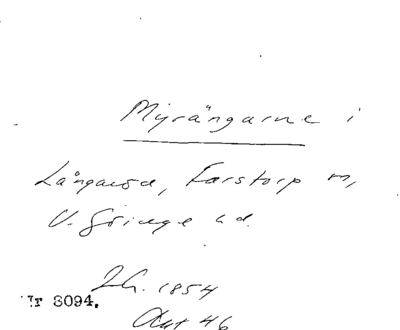 Myrängarne i
Långaröd, Farstorp m,
V. Göinge hd.
1854
Nr 8094.
Akt 46